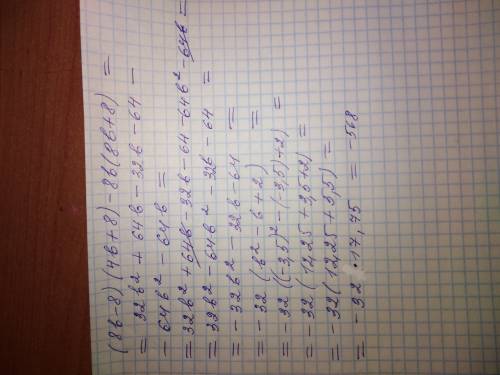 (8b-8)(4b+8)-8b(8b+8) =
= 32b² + 64b - 32b - 64 -
- 64b² - 64b =
= 32b² + 64b - 32b - 64 - 64b² - 64b =
= 32b² - 64b² - 32b - 64 =
= - 32b² - 32b - 64 =
= - 32 (b² - b + 2) =
= - 32 ((-3,5)² - (-3,5)+2) =
= - 32 (12,25 + 3,5 + 2) =
= - 32 (12,25 + 5,5) =
= - 32 · 17,75 = - 568